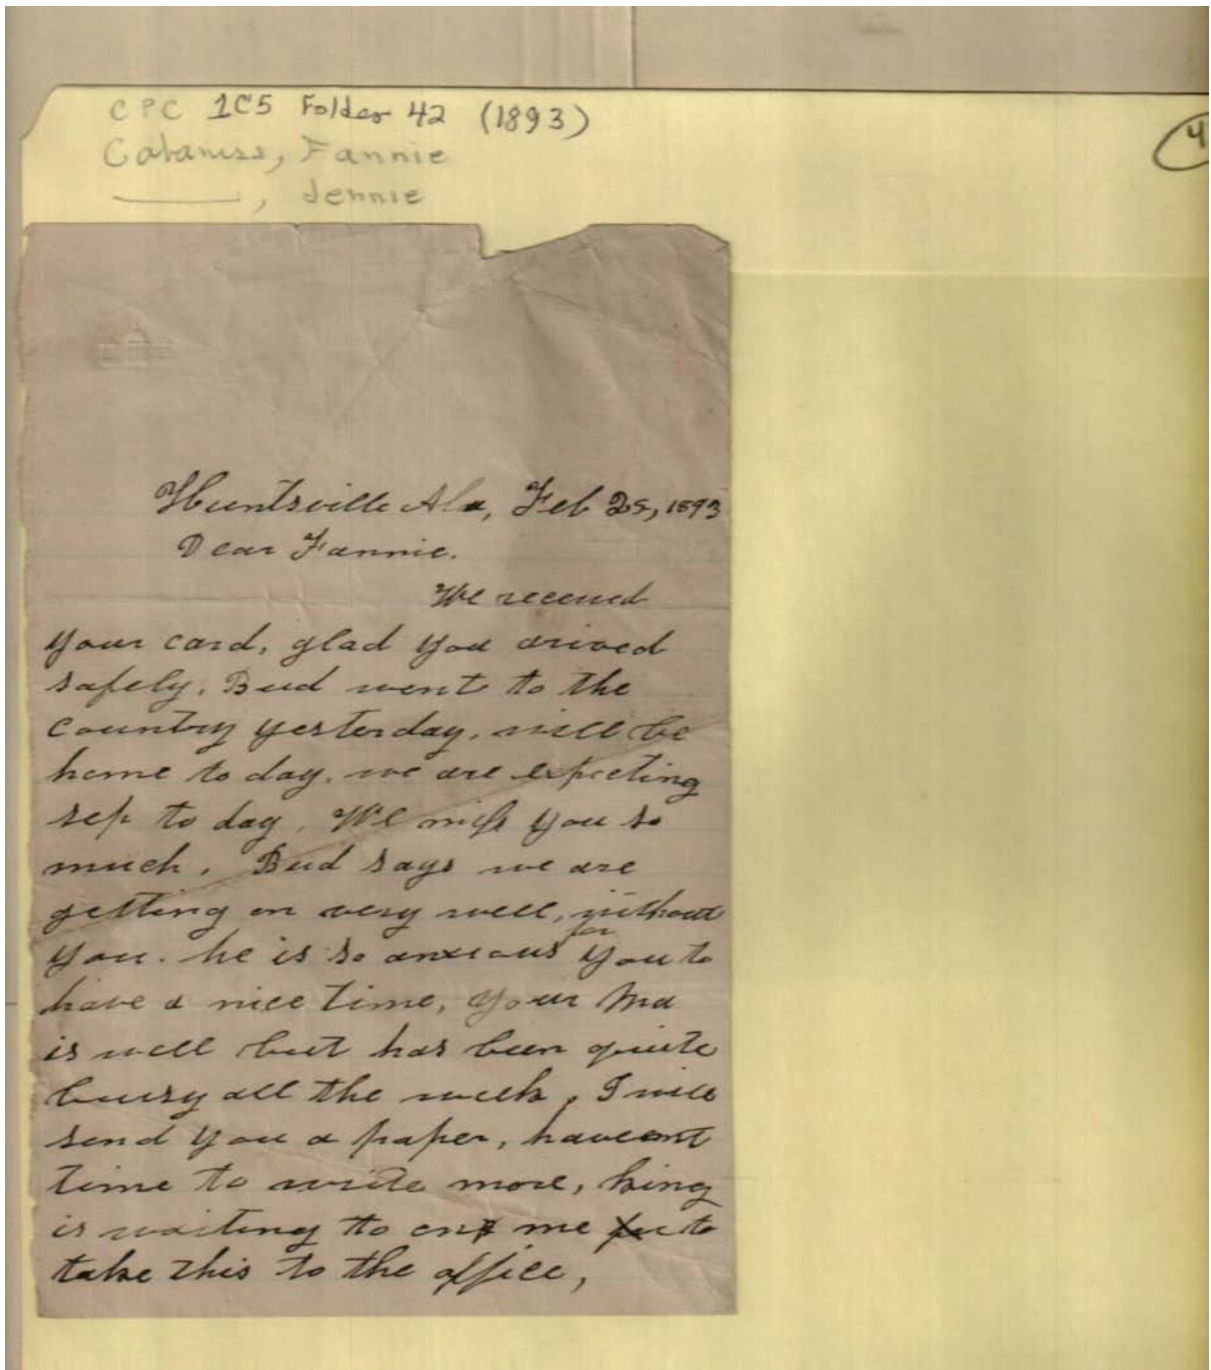 CPC 1C5 Folder 42 (1893)
4
Cabaniss, Fannie
———, Jennie
Huntsville Ala, Feb 25, 1893
Dear Fannie.
We received
your card, glad you arived
safely. Bud went to the
country yesterday, will be
home to day, we are expecting
sep to day. We miss you so
much. Bud says we are
getting on very well, without
you. he is so anxious for you to
have a nice time, your Ma
is well but has been quite
buisy all the week, I will
send you a paper, haveont
time to write more, king
is waiting to me to
take this to the office,